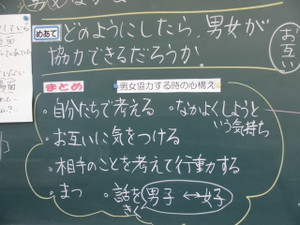 めあて どのようにしたら、男女が
協力できるだろうか。
お互い
まとめ 男女協力する時の心構え
・自分たちで考える ・なかよくしようと
いう気持ち
・お互いに気をつける
・相手のことを考えて行動する
・まつ ・話をきく 男子 ↔ 女子